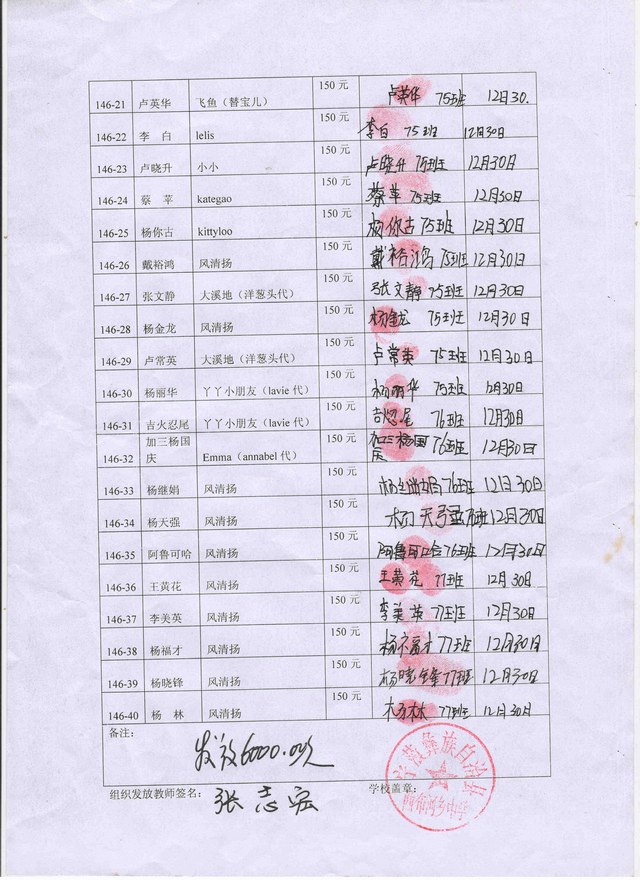 146-21 卢英华 飞鱼（替宝儿） 150 元 卢英华 75班 12日30.
146-22 李 白 lelis 150 元 李白 75班 12月30日
146-23 卢晓升 小小 150 元 卢晓升 75班 12月30日
146-24 蔡 苹 kategao 150 元 蔡苹 75班 12月30日
146-25 杨你古 kittyloo 150 元 杨你古 75班 12月30日
146-26 戴裕鸿 风清扬 150 元 戴裕鸿 75班 12月30日
146-27 张文静 大溪地（洋葱头代） 150 元 张文静 75班 12月30日
146-28 杨金龙 风清扬 150 元 杨金龙 75班 12月30日
146-29 卢常英 大溪地（洋葱头代） 150 元 卢常英 75班 12月30日
146-30 杨丽华 丫丫小朋友（lavie 代） 150 元 杨丽华 75班 12月30日
146-31 吉火忍尾 丫丫小朋友（lavie 代） 150 元 76班 12月30日
146-32 加三杨国庆 Emma（annabel 代） 150 元 加三杨国庆 76班 12月30日
146-33 杨继娟 风清扬 150 元 杨继娟 76班 12月30日
146-34 杨天强 风清扬 150 元 杨天强 76班 12月30日
146-35 阿鲁可哈 风清扬 150 元 阿鲁可哈 76班 12月30日
146-36 王黄花 风清扬 150 元 王黄花 77班 12月30日
146-37 李美英 风清扬 150 元 李美英 77班 12月30日
146-38 杨福才 风清扬 150 元 杨福才 77班 12月30日
146-39 杨晓锋 风清扬 150 元 杨晓锋 77班 12月30日
146-40 杨 林 风清扬 150 元 杨林 77班 12月30日
备注：
发放6000.00元
组织发放教师签名： 张志宏 学校盖章：
宁蒗彝族自治县